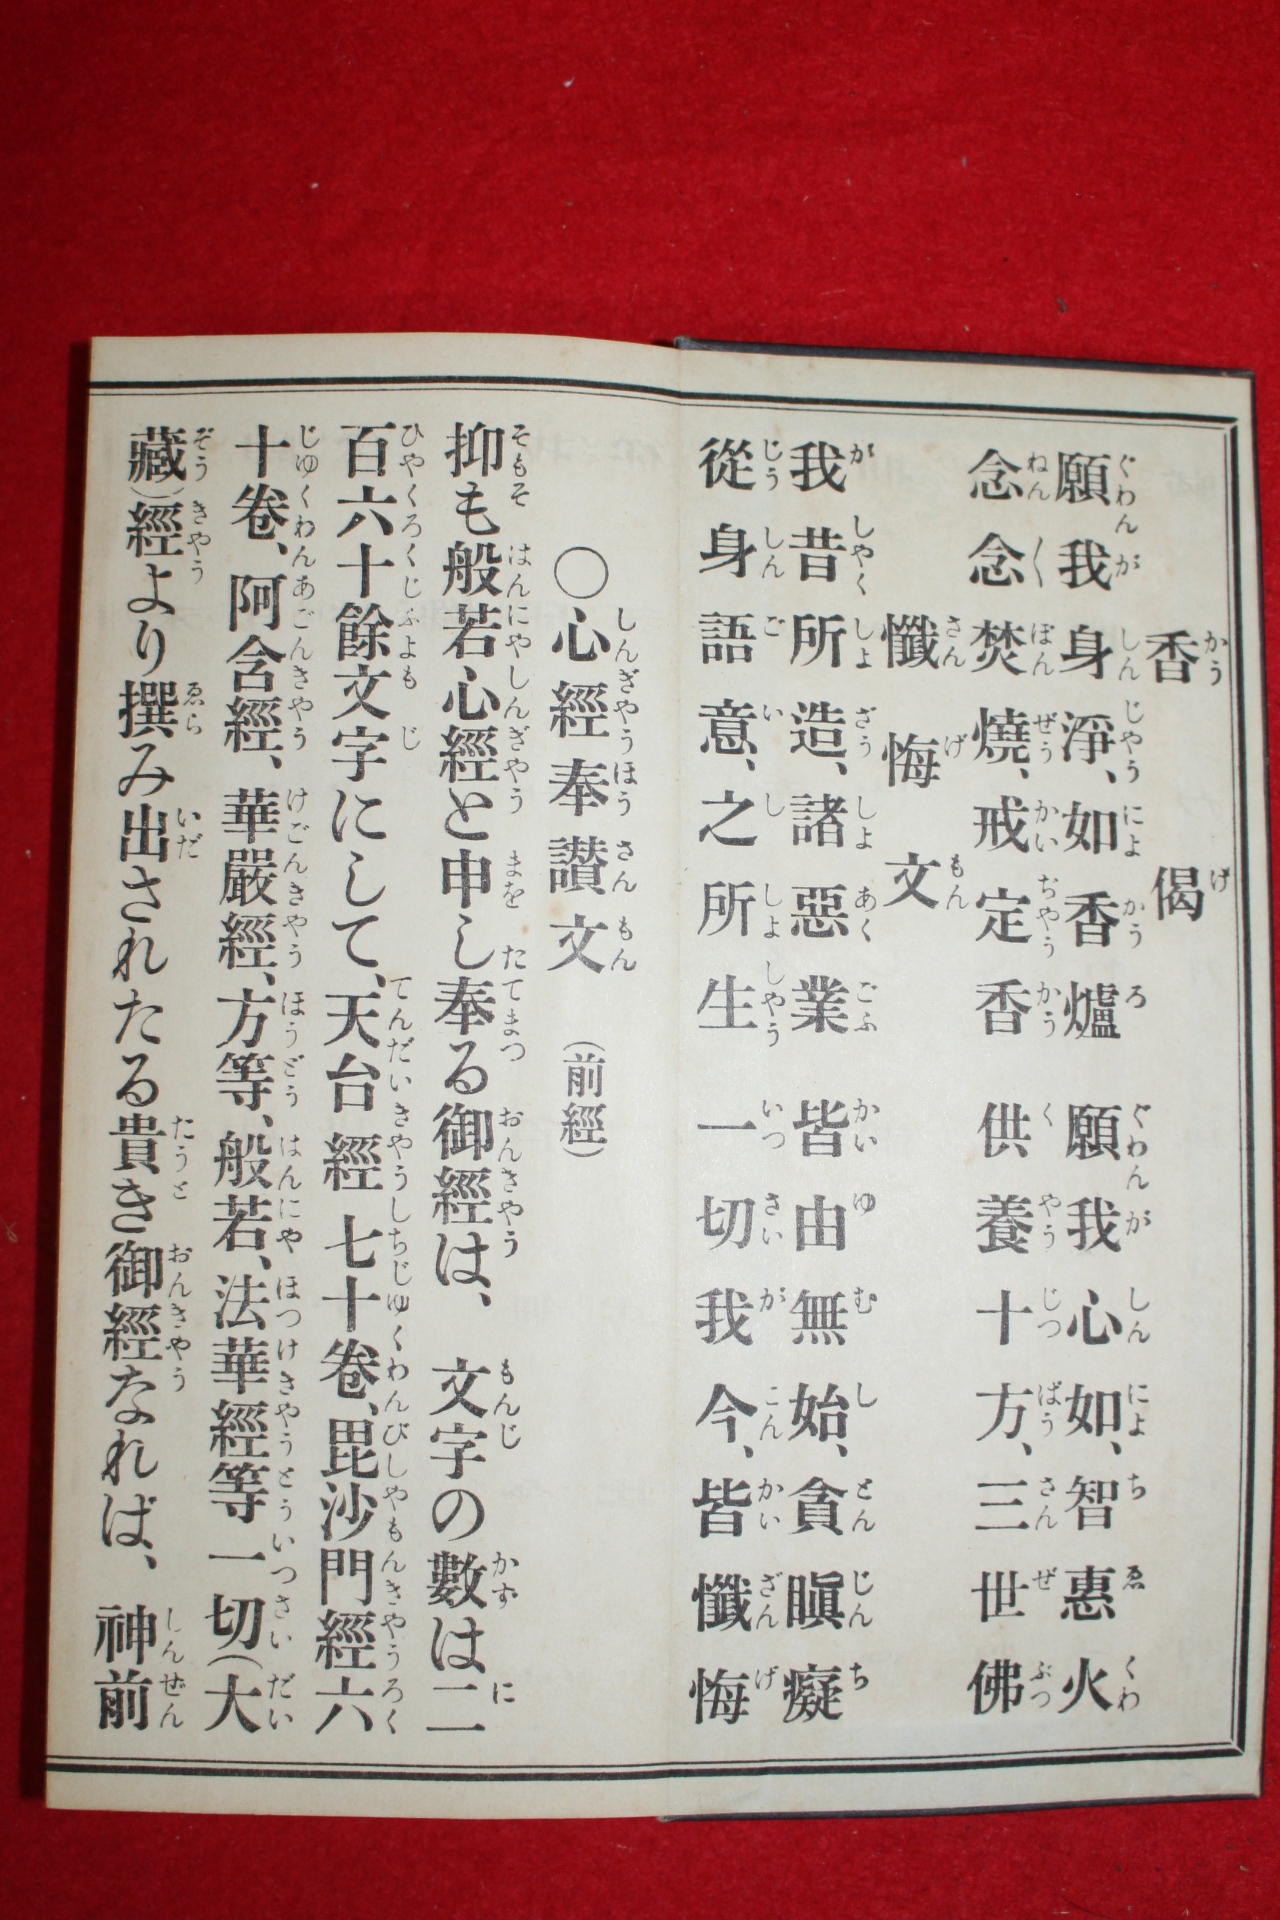 香偈
願我身淨、如香爐　願我心如、智惠火
念念焚燒、戒定香　供養十方、三世佛
懺悔文
我昔所造、諸惡業　皆由無始、貪瞋癡
從身語意、之所生　一切我今、皆懺悔
〇心經奉讃文　（前經）
抑も般若心經と申し奉る御經は、　文字の數は二
百六十餘文字にして、天台經七十卷、毘沙門經六
十卷、阿含經、華嚴經、方等、般若、法華經等一切（大
藏）經より撰み出されたる貴き御經なれば、　神前